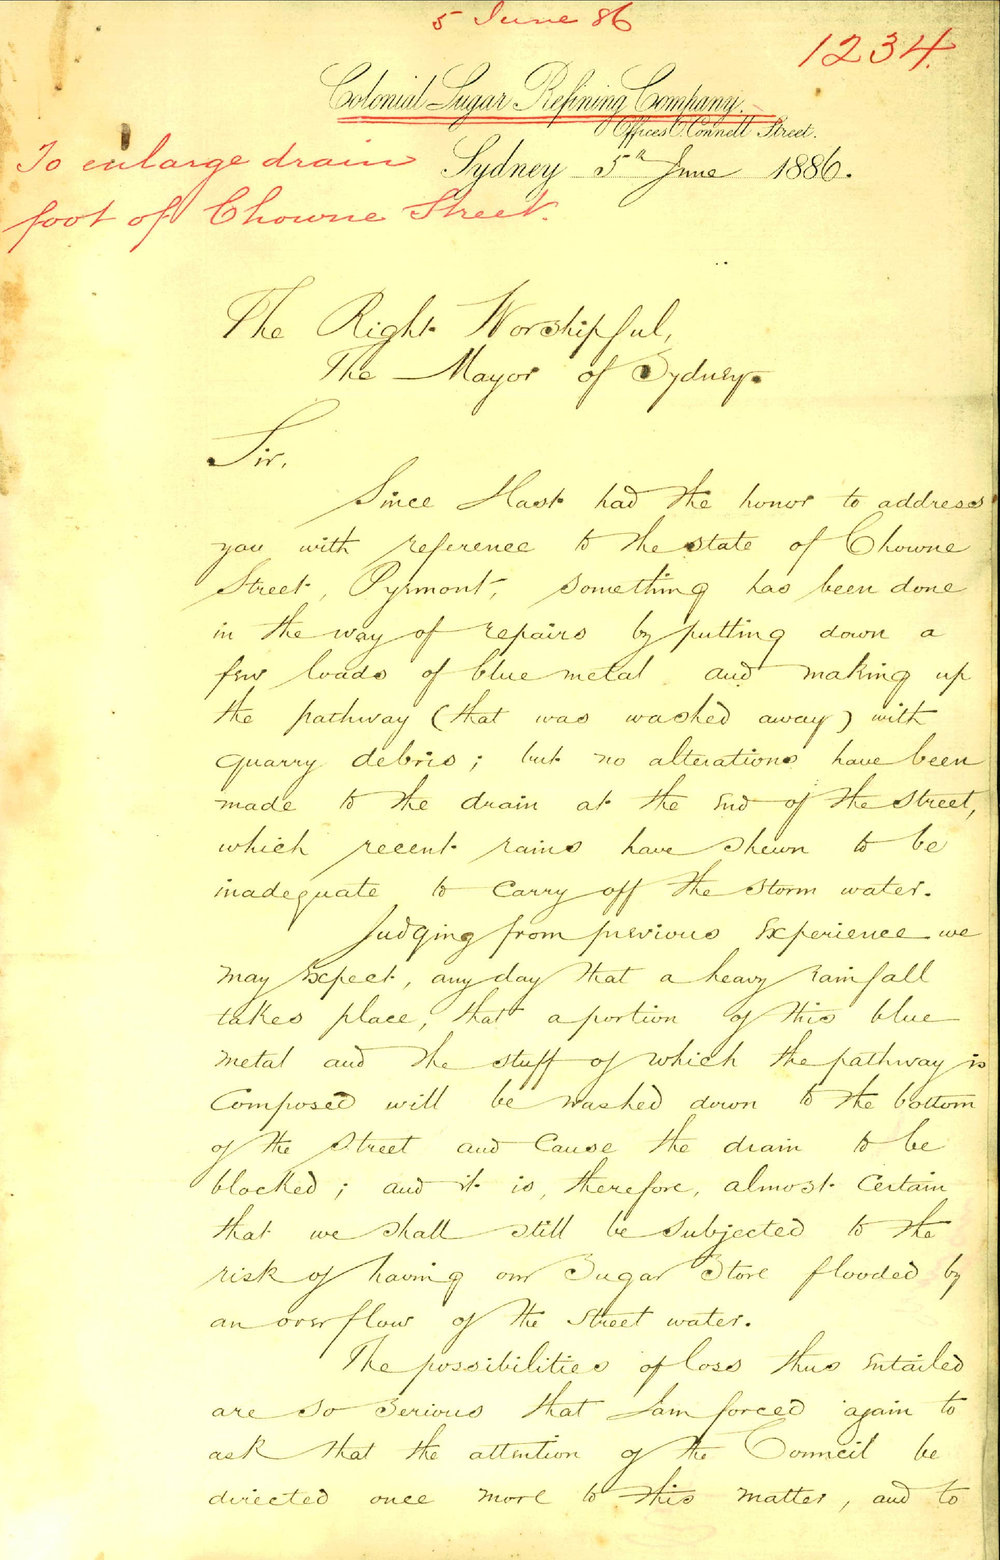 5 June 86
1234.
Colonial Sugar Refining Company.
Offices O'Connell Street.
To enlarge drain
foot of Chowne Street.
Sydney 5th June 1886.
The Right Worshipful,
The Mayor of Sydney.
Sir,
Since I last had the honor to address
you with reference to the state of Chowne
Street, Pyrmont, something has been done
in the way of repairs by putting down a
few loads of blue metal and making up
the pathway (that was washed away) with
quarry debris; but no alterations have been
made to the drain at the end of the street,
which recent rains have shewn to be
inadequate to carry off the storm water.
Judging from previous experience we
may expect, any day that a heavy rainfall
takes place, that a portion of this blue
metal and the stuff of which the pathway is
composed will be washed down to the bottom
of the street and cause the drain to be
blocked; and it is, therefore, almost certain
that we shall still be subjected to the
risk of having our Sugar Store flooded by
an overflow of the street water.
The possibilities of loss thus entailed
are so serious that I am forced again to
ask that the attention of the Council be
directed once more to this matter, and to